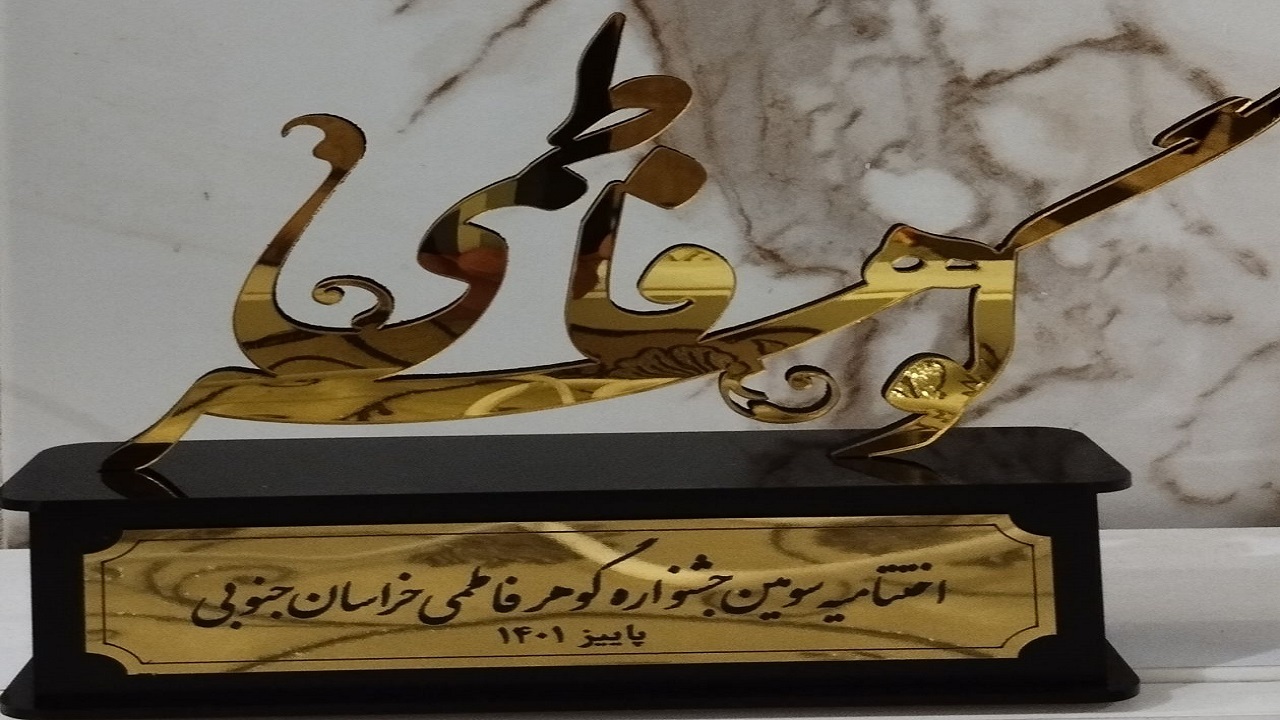 گوهر فاطمی
اختتامیه سومین جشنواره گوهر فاطمی خراسان جنوبی
پاییز ۱۴۰۱